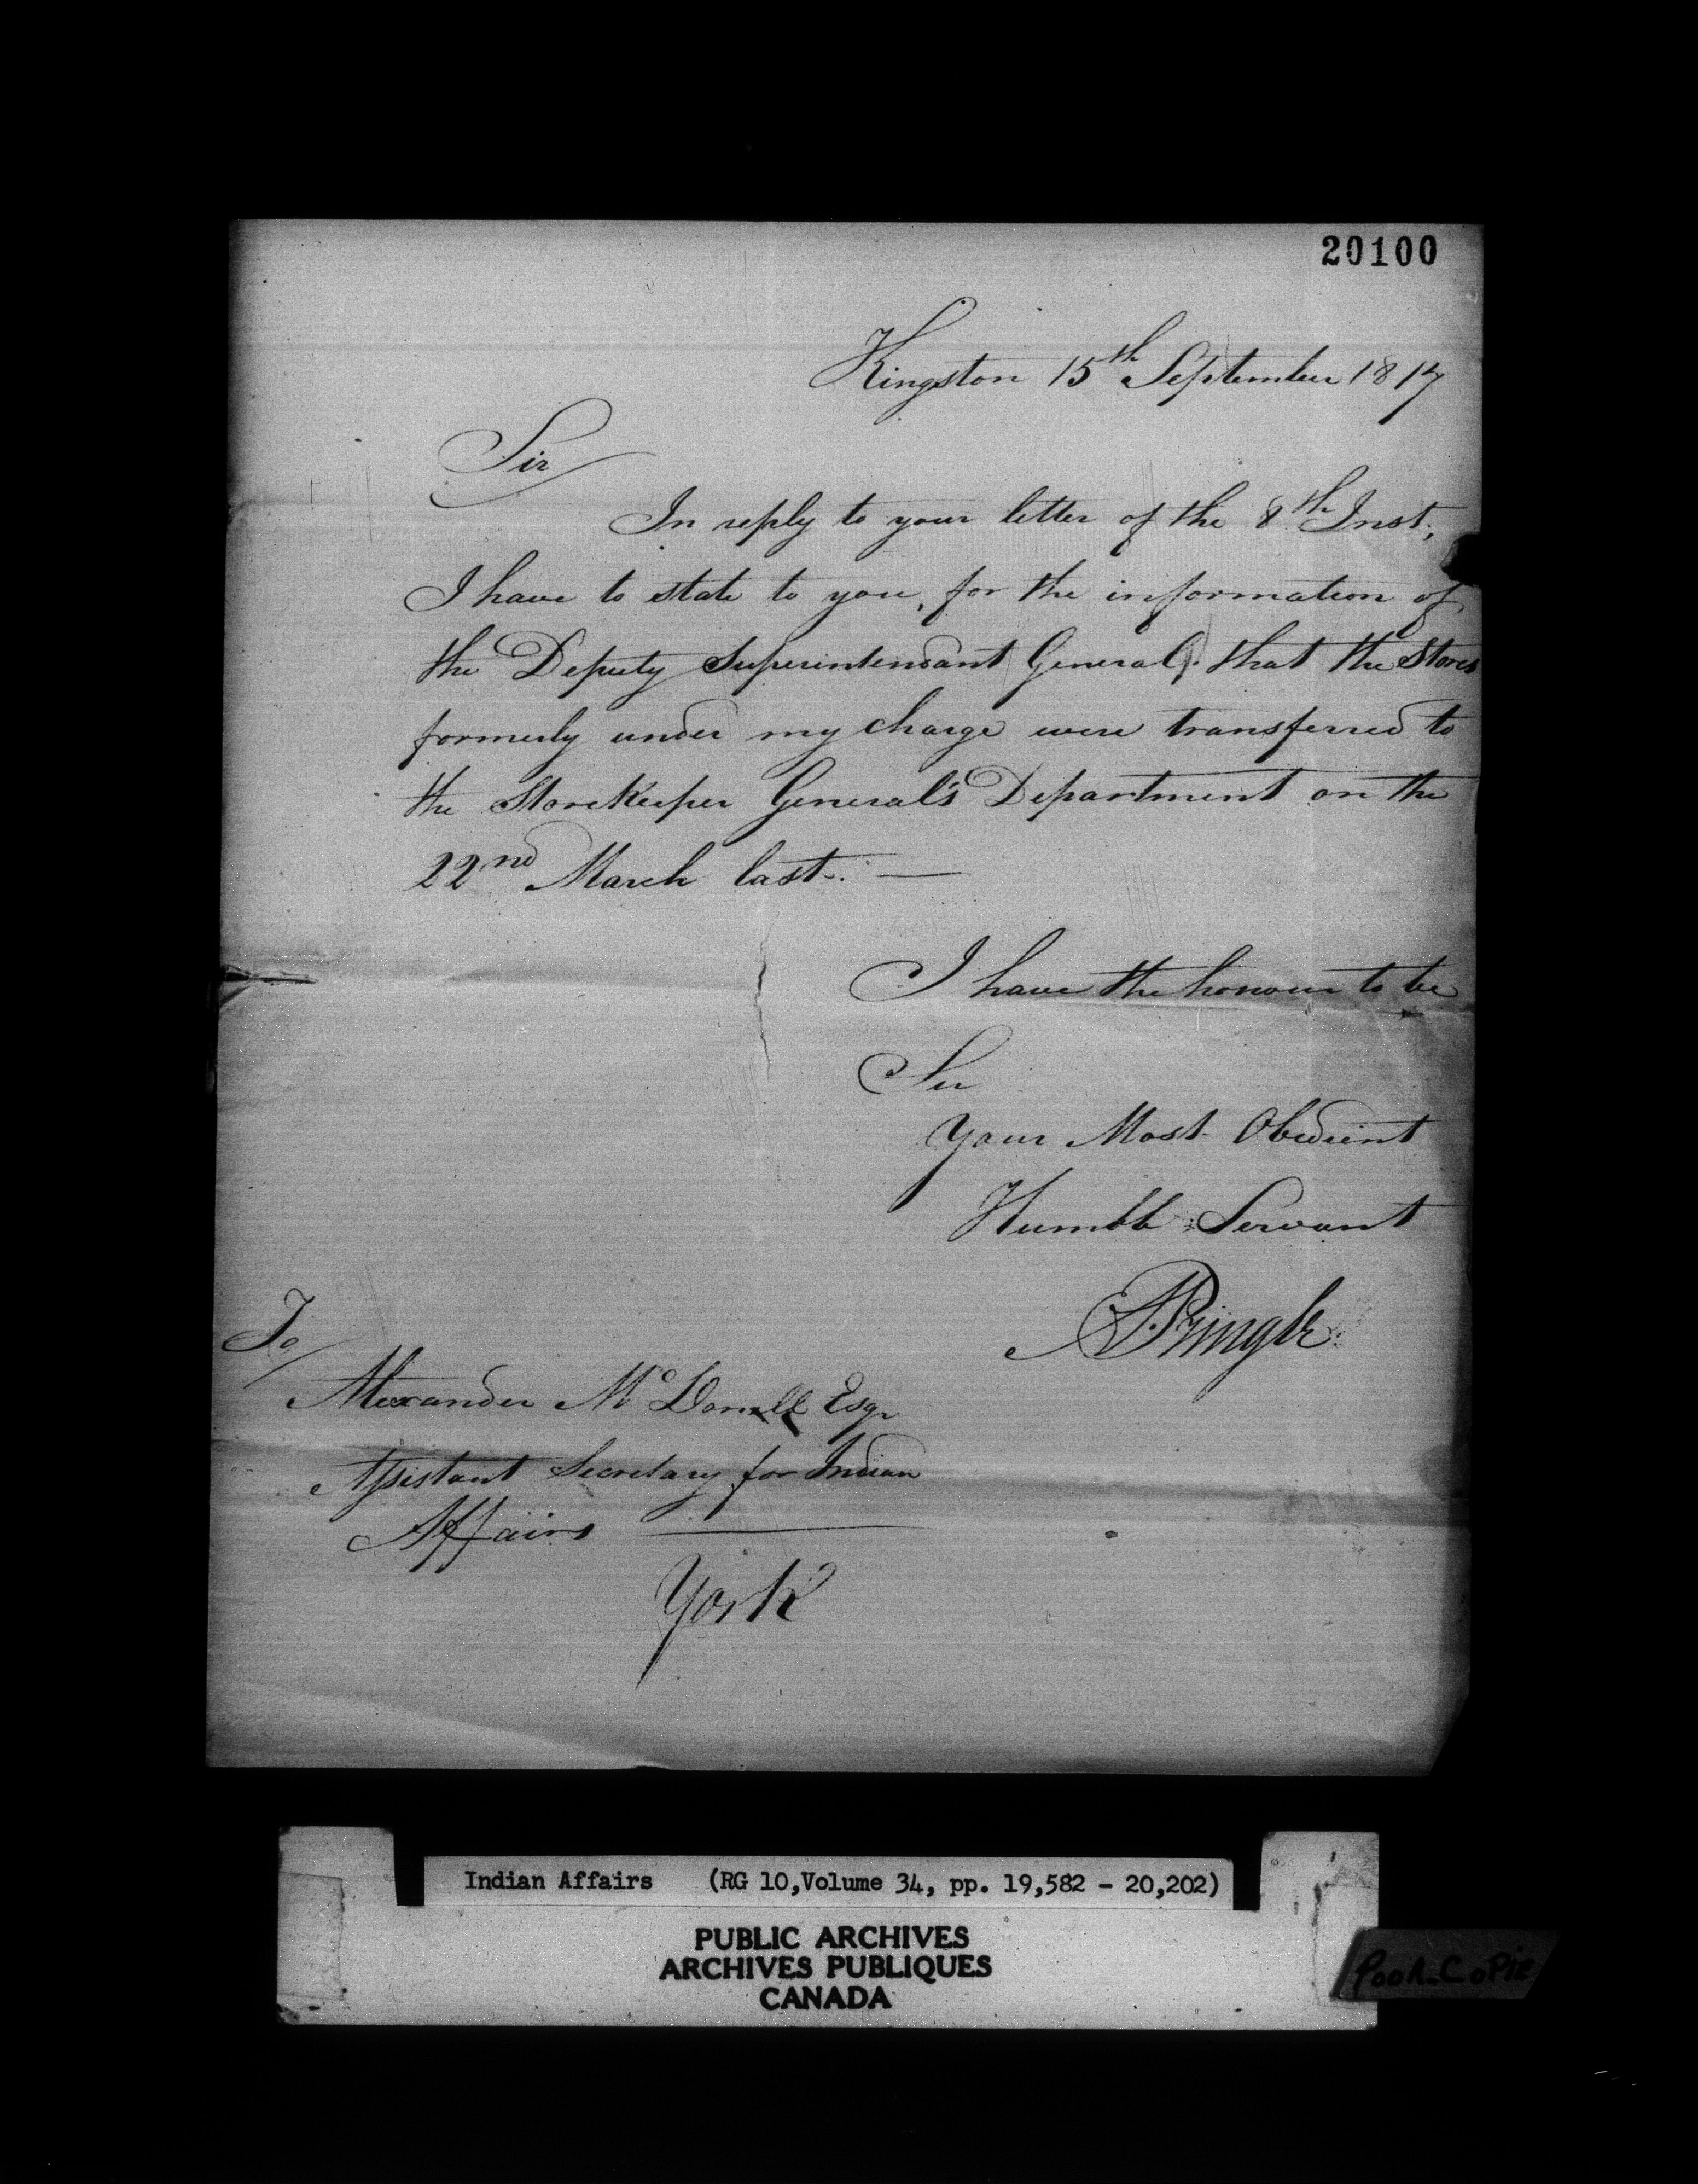 20100
Kingston 15th September 1817
Sir
In reply to your letter of the 8th Inst.,
I have to state to you, for the information of
the Deputy Superintendant General, that the Stores
formerly under my charge were transferred to
the StoreKeeper General's Department on the
22nd March last. —
I have the honour to be
Sir
Your Most Obedient
Humble Servant
A Pringle
To
Alexander McDonell Esqr
Assistant Secretary for Indian
Affairs
York
Indian Affairs (RG 10, Volume 34, pp. 19,582 - 20,202)
PUBLIC ARCHIVES
ARCHIVES PUBLIQUES
CANADA
POOR_COPIE